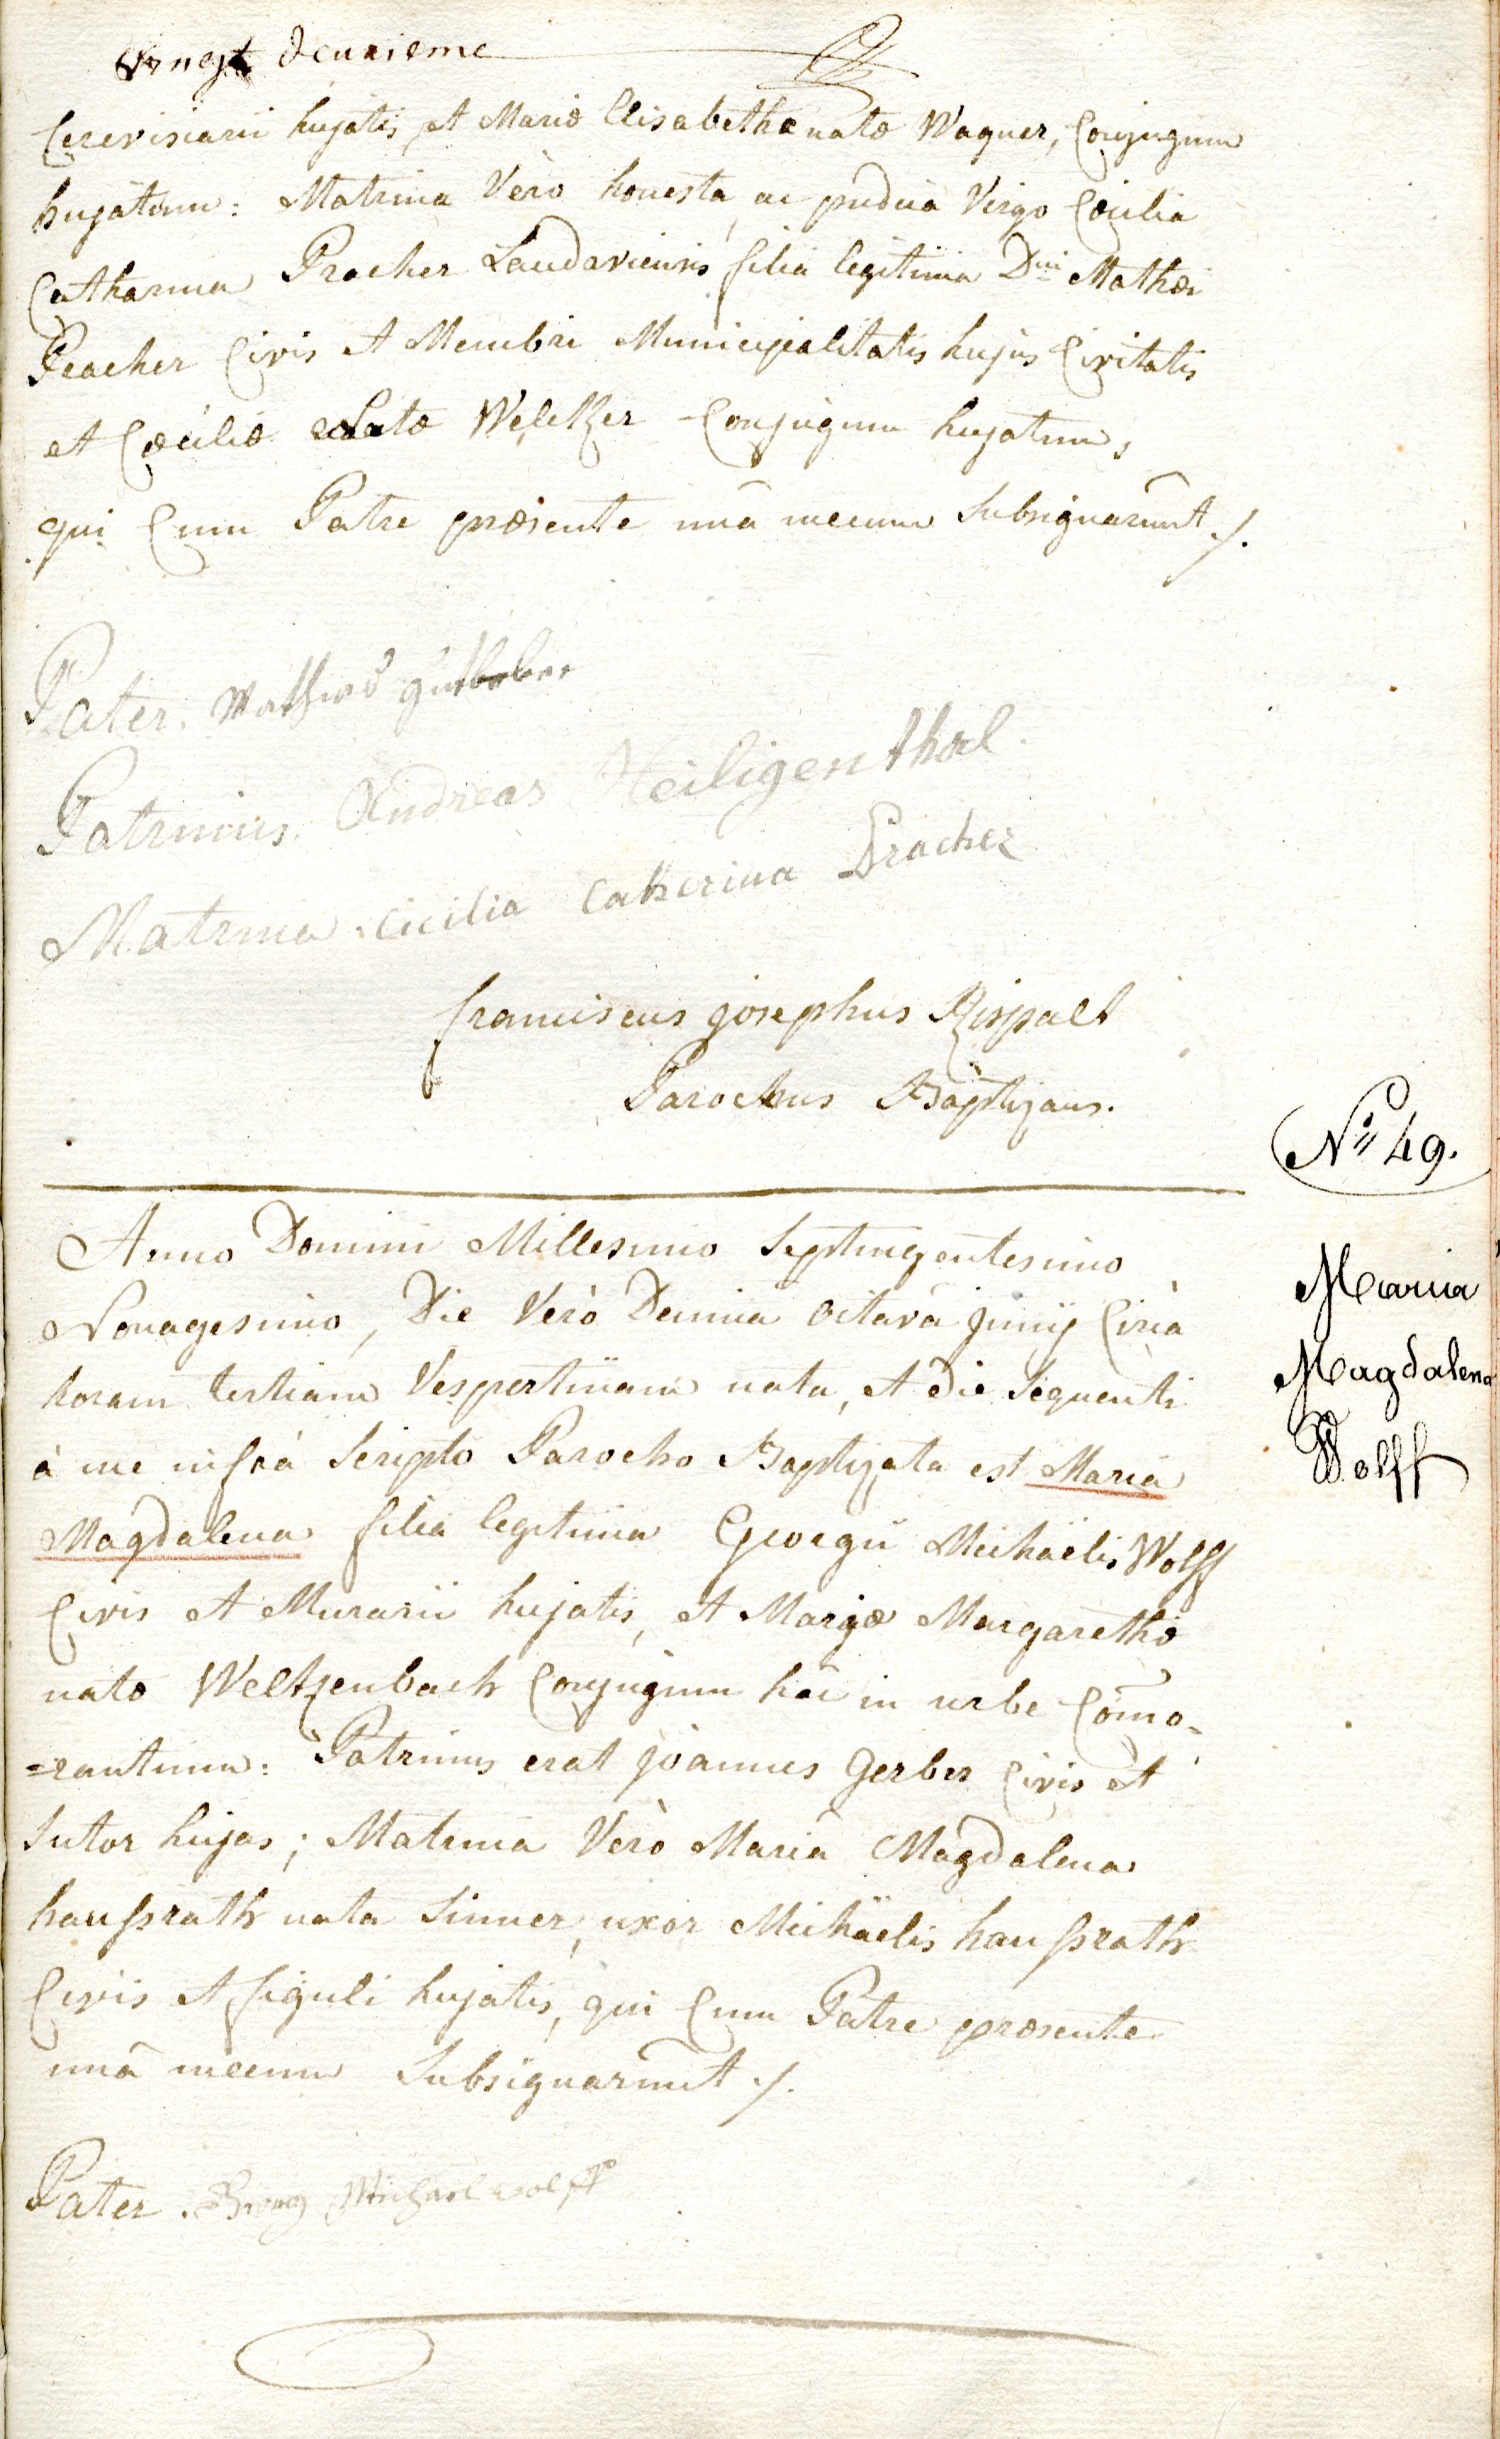 Vingt deuxieme
Cerevisiarii hujatis, et Mariæ Elisabethæ natæ Wagner, Conjugum
hujatum: Matrina Verò honesta ac pudica Virgo Cæcilia
Catharina Pracher Landaviensis filia legitima Dni Mathæi
Pracher Civis et Membri Municipalitatis hujus Civitatis
et Cæciliæ natæ Weltzer Conjugum hujatum,
qui Cum Patre præsente unâ mecum Subsignarunt ./.
Pater.
Patrinus. Andreas Heiligenthal
Matrina. Cicilia Catherina Pracher
franciscus josephus Rispalt
Parochus Baptizans.
Nro 49.
Maria
Magdalena
Wolff
Anno Domini Millesimo Septingentesimo
Nonagesimo, Die Verò Decima Octavâ junij Circà
horam tertiam Vespertinam nata, et die Sequenti
à me infrà Scripto Parocho Baptizata est Maria
Magdalena filia legitima Georgii Michaëlis Wolff
Civis et Murarii hujatis, et Mariæ Margarethæ
natæ Weltzenbach Conjugum hâc in urbe Com̄o-
=rantium: Patrinus erat joannes Gerber Civis et
Sutor hujas; Matrina Verò Maria Magdalena
haußrath nata Sinner, uxor Michaëlis haußrath
Civis et figuli hujatis, qui Cum Patre præsente
unâ mecum Subsignarunt ./.
Pater. Georg Michael Wolff